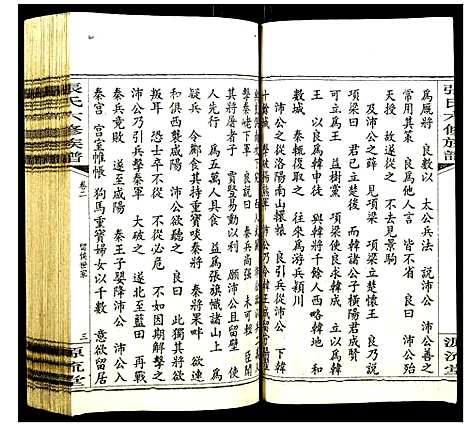 張氏六修族譜
為廄將 良數以 太公兵法 說沛公 沛公善之
常用其策 良為他人言 皆不省 良曰 沛公殆
天授 故遂從之 不去見景駒
及沛公之薛 見項梁 項梁立楚懷王 良乃說
項梁曰 君已立楚後 而韓諸公子橫陽君成賢
可立為王 益樹黨 項梁使良求韓成 立以為韓
王 以良為韓申徒 與韓王將千餘人西略韓地
得數城 秦輒復取之 往來為游兵潁川
沛公之從洛陽南出轘轅 良引兵從沛公 下韓
十餘城
擊秦嶢下軍 良說曰 秦兵尚強 未可輕 臣聞
其將屠者子 賈豎易動以利 願沛公且留壁 使
人先行 為五萬人具食 益為張旗幟諸山上 為
疑兵 令酈食其持重寶啖秦將 秦將果畔 欲連
和俱西襲咸陽 沛公欲聽之 良曰 此獨其將欲
叛耳 恐士卒不從 不從必危 不如因期解擊之
沛公乃引兵擊秦軍 大破之 遂北至藍田 再戰
秦兵竟敗 遂至咸陽 秦王子嬰降沛公 沛公入
秦宮 宮室帷帳 狗馬重寶婦女以千數 意欲留居
張氏六修族譜
卷二
留侯世家
三